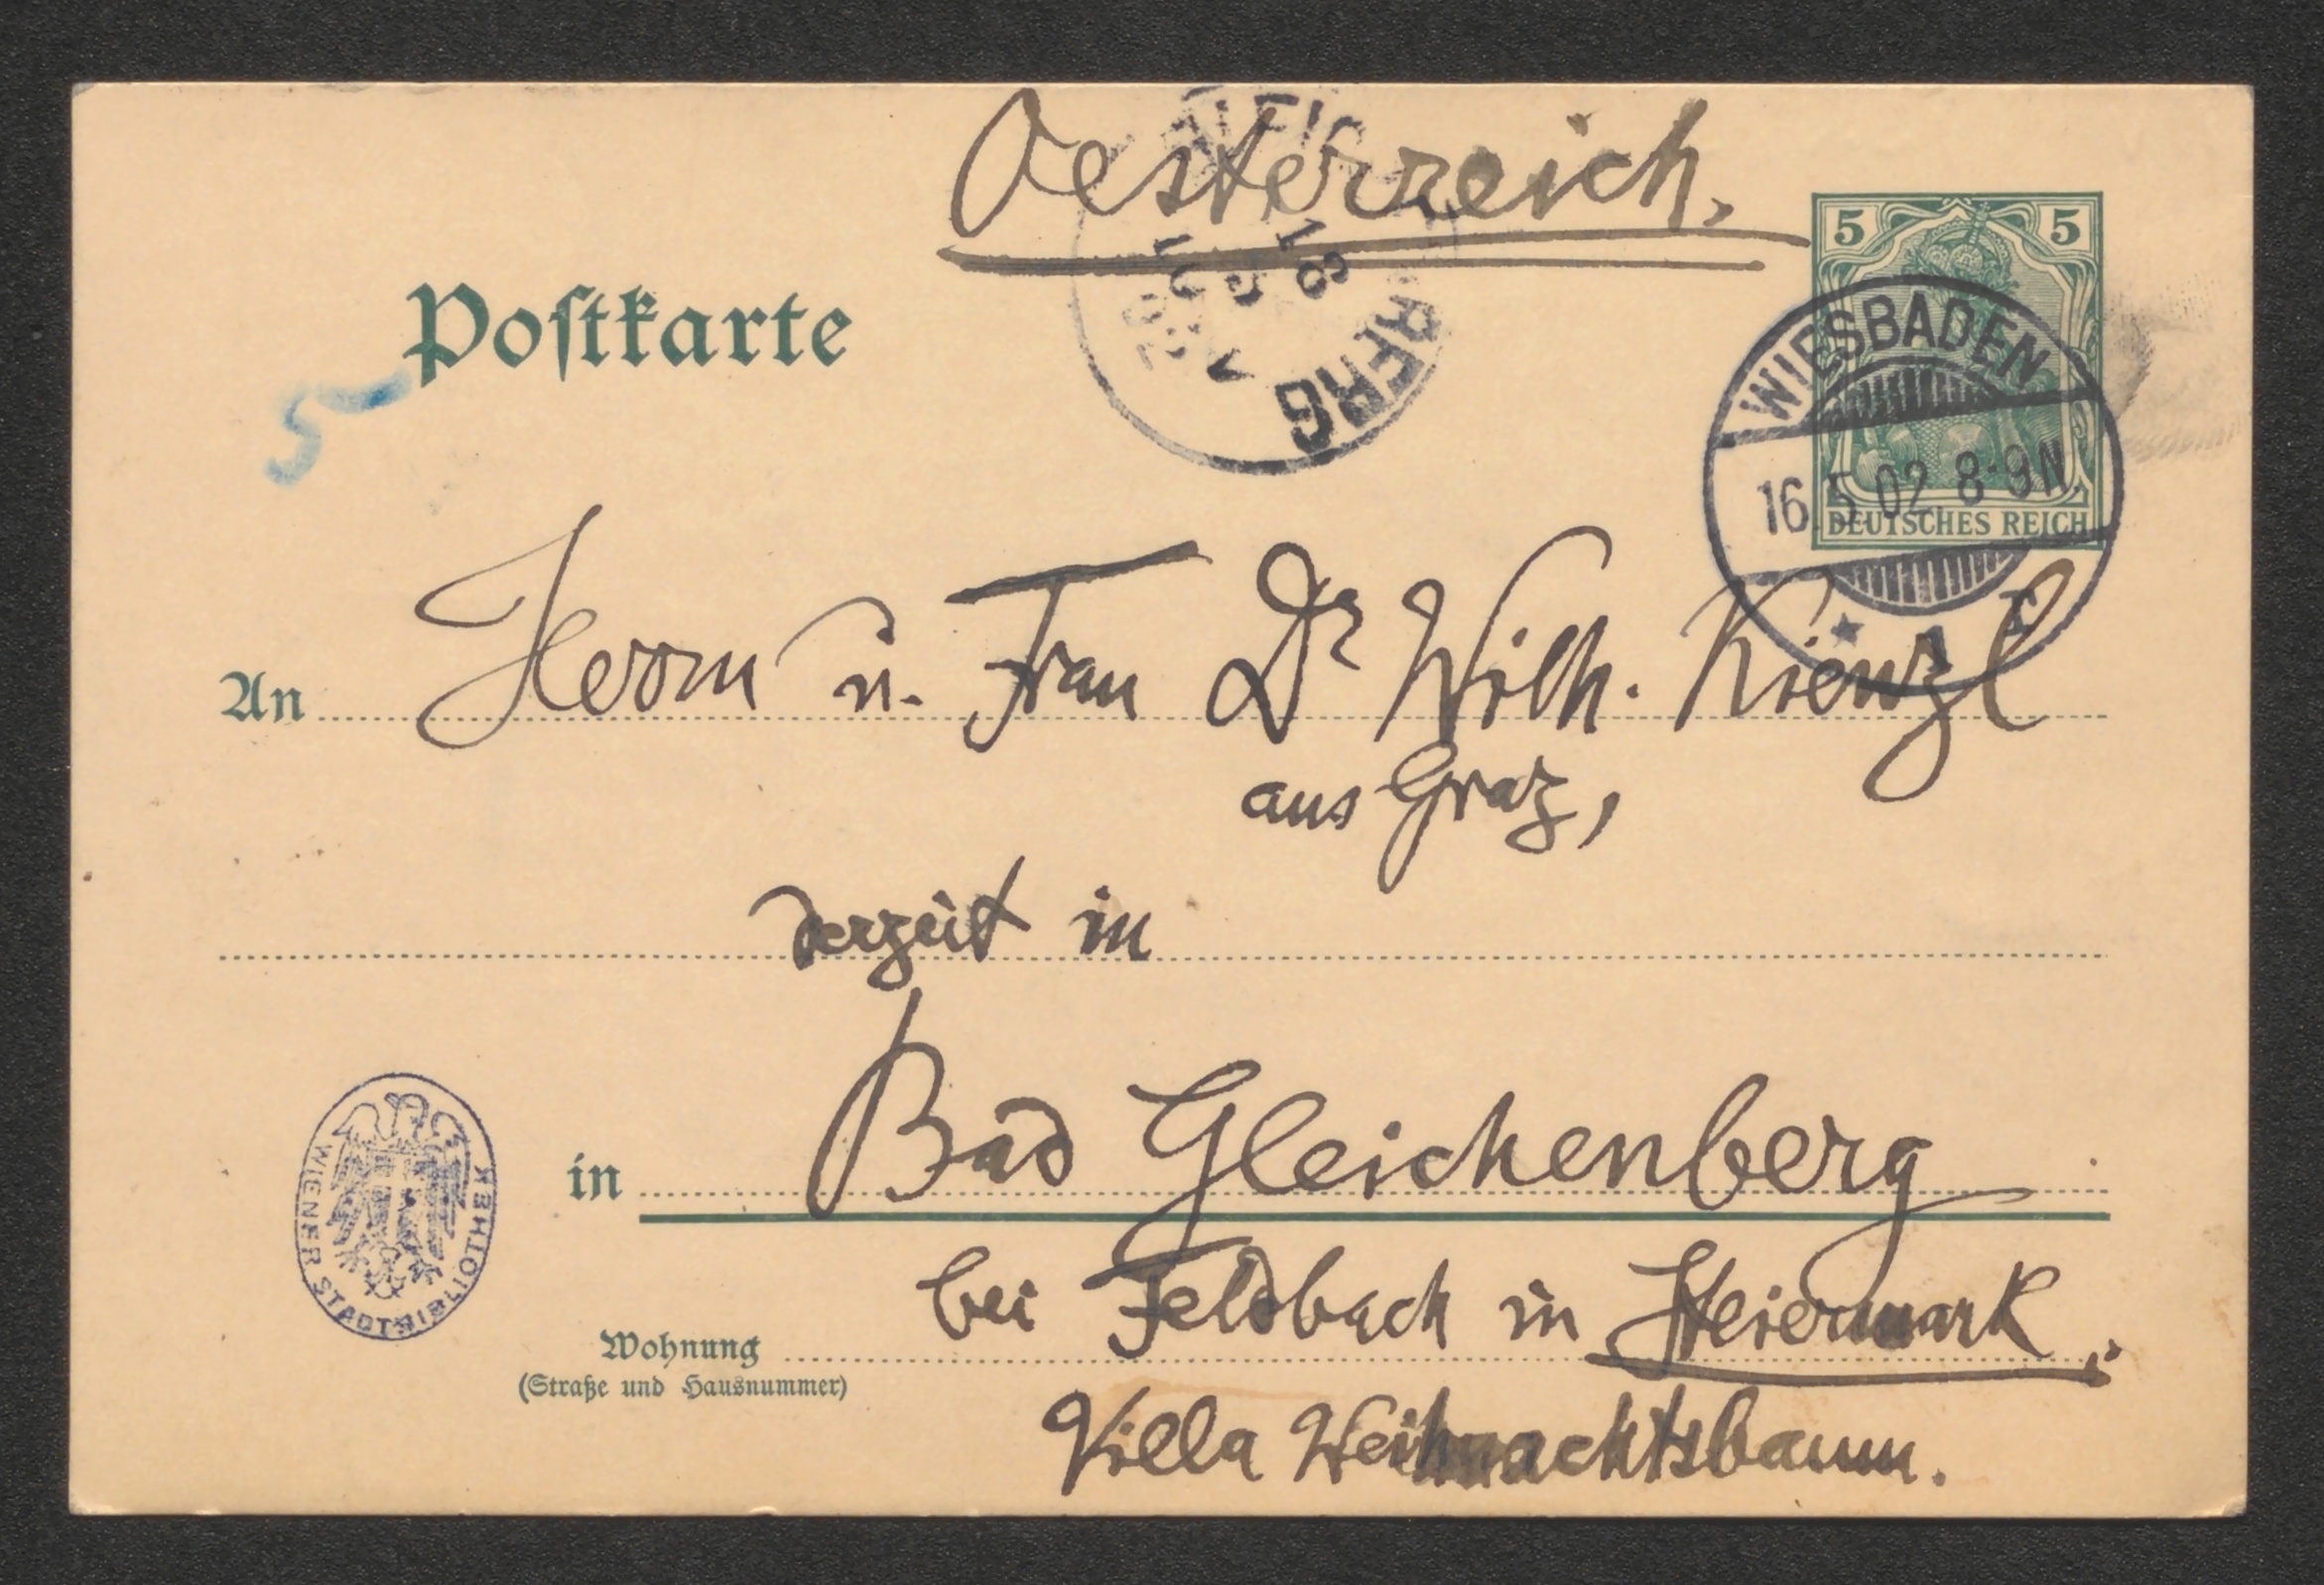 Oesterreich.
Postkarte
5 5
DEUTSCHES REICH
WIESBADEN
16.5.02 8-9N.
* 1 r
18
5
02
BERG
5
An Herrn u. Frau Dr Wilh. Kienzl
aus Graz,
derzeit in
in Bad Gleichenberg
bei Feldbach in Steiermark.
Wohnung
(Straße und Hausnummer)
Villa Weihnachtsbaum.
WIENER STADTBIBLIOTHEK